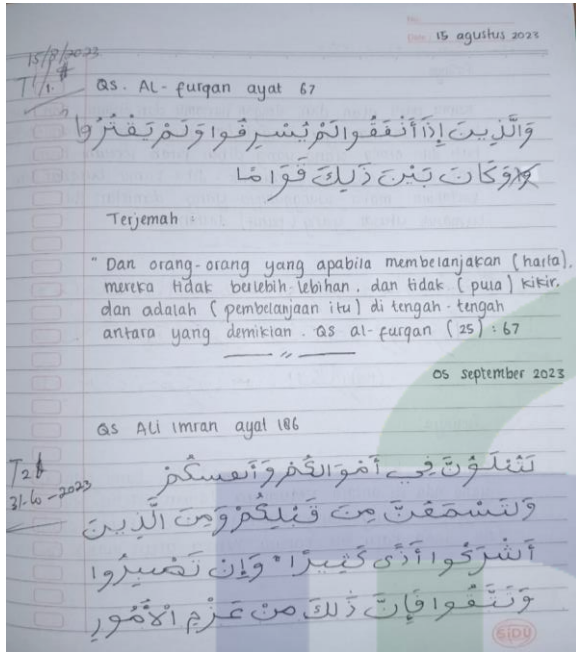 No.
Date. 15 agustus 2023
15/8/2023
T1/1.
Qs. Al-furqan ayat 67
وَالَّذِينَ إِذَا أَنْفَقُوا لَمْ يُسْرِفُوا وَلَمْ يَقْتُرُوا
وَكَانَ بَيْنَ ذَلِكَ قَوَامًا
Terjemah :
" Dan orang-orang yang apabila membelanjakan (harta),
mereka tidak berlebih-lebihan, dan tidak (pula) kikir,
dan adalah (pembelanjaan itu) di tengah-tengah
antara yang demikian. Qs al-furqan (25) : 67
05 september 2023
Qs Ali imran ayat 186
T2
31-10-2023
لَتُبْلَوُنَّ فِي أَمْوَالِكُمْ وَأَنْفُسِكُمْ
وَلَتَسْمَعُنَّ مِنَ قَبْلِكُمْ وَمِنَ الَّذِينَ
أَشْرَكُوا أَذًى كَثِيرًا ۚ وَإِنْ تَصْبِرُوا
وَتَتَّقُوا فَإِنَّ ذَلِكَ مِنْ عَزْمِ الْأُمُورِ
SiDU